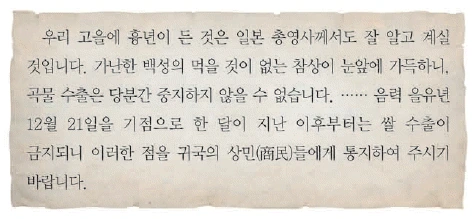 우리 고을에 흉년이 든 것은 일본 총영사께서도 잘 알고 계실
것입니다. 가난한 백성의 먹을 것이 없는 참상이 눈앞에 가득하니,
곡물 수출은 당분간 중지하지 않을 수 없습니다. …… 음력 을유년
12월 21일을 기점으로 한 달이 지난 이후부터는 쌀 수출이
금지되니 이러한 점을 귀국의 상민(商民)들에게 통지하여 주시기
바랍니다.